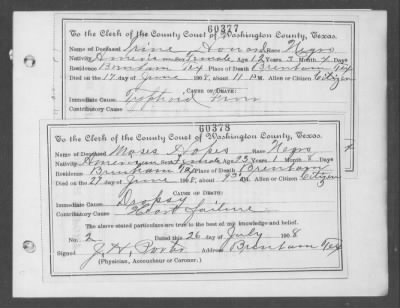 60377
To the Clerk of the County Court of Washington County, Texas.
Name of Deceased Irine Howard Race Negro
Nativity American Sex Female Age 12 Years 3 Month 4 Days
Residence Brenham Tex Place of Death Brenham Tex
Died on the 19 day of June 1908, about 11 P.M. Alien or Citizen Citizen
CAUSE OF DEATH:
Immediate Cause Typhoid Fever
Contributory Cause
60378
To the Clerk of the County Court of Washington County, Texas.
Name of Deceased Moses Hopes Race Negro
Nativity American Sex Age 23 Years 1 Month 8 Days
Residence Brenham Tex Place of Death Brenham
Died on the 21 day of June 1908, about M. Alien or Citizen Citizen
CAUSE OF DEATH:
Immediate Cause Dropsy
Contributory Cause Heart failure
The above stated particulars are true to the best of my knowledge and belief.
No. 2 Dated this 26 day of July 1908
Signed J. H. Address Brenham Tex
(Physician, Accoucheur or Coroner.)